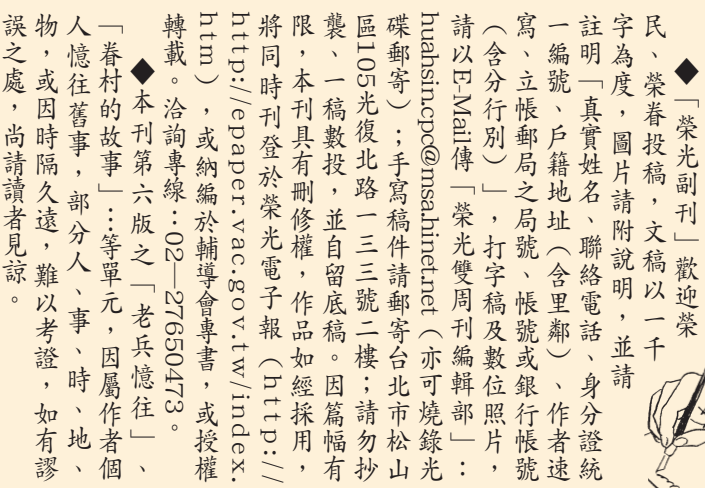 ◆「榮光副刊」歡迎榮
民、榮眷投稿，文稿以一千
字為度，圖片請附說明，並請
註明「真實姓名、聯絡電話、身分證統
一編號、戶籍地址（含里鄰）、作者速
寫、立帳郵局之局號、帳號或銀行帳號
（含分行別）」，打字稿及數位照片，
請以E-Mail傳「榮光雙周刊編輯部」：
huahsin.cpc@msa.hinet.net（亦可燒錄光
碟郵寄）；手寫稿件請郵寄台北市松山
區105光復北路一三三號二樓；請勿抄
襲、一稿數投，並自留底稿。因篇幅有
限，本刊具有刪修權，作品如經採用，
將同時刊登於榮光電子報（http://
http://epaper.vac.gov.tw/index.
htm），或納編於輔導會專書，或授權
轉載。洽詢專線：02—27650473。
◆本刊第六版之「老兵憶往」、
「眷村的故事」…等單元，因屬作者個
人憶往舊事，部分人、事、時、地、
物，或因時隔久遠，難以考證，如有謬
誤之處，尚請讀者見諒。